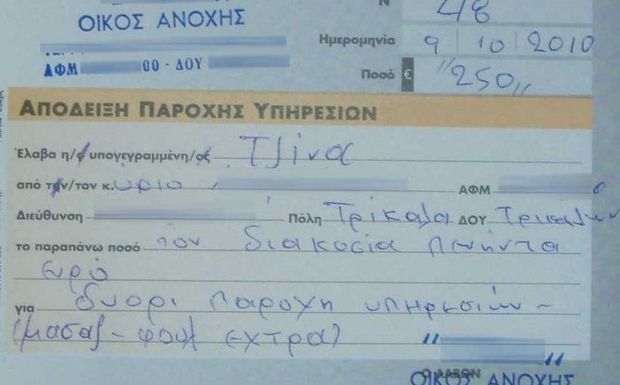 ΟΙΚΟΣ ΑΝΟΧΗΣ
ΑΦΜ 00 - ΔΟΥ
Ν 48
Ημερομηνία 9 10 2010
Ποσό € "250"
ΑΠΟΔΕΙΞΗ ΠΑΡΟΧΗΣ ΥΠΗΡΕΣΙΩΝ
Έλαβα η/ο υπογεγραμμένη/ος Τζίνα
από την/τον κ. ύριο ΑΦΜ
Διεύθυνση Πόλη Τρίκαλα ΔΟΥ Τρικάλων
το παραπάνω ποσό των διακοσία πενήντα
ευρό
για δυορι παροχη υπηρεσιών -
(μασαζ - φουλ εχτρα)
Ο ΛΑΒΩΝ
ΟΙΚΟΣ ΑΝΟΧΗΣ